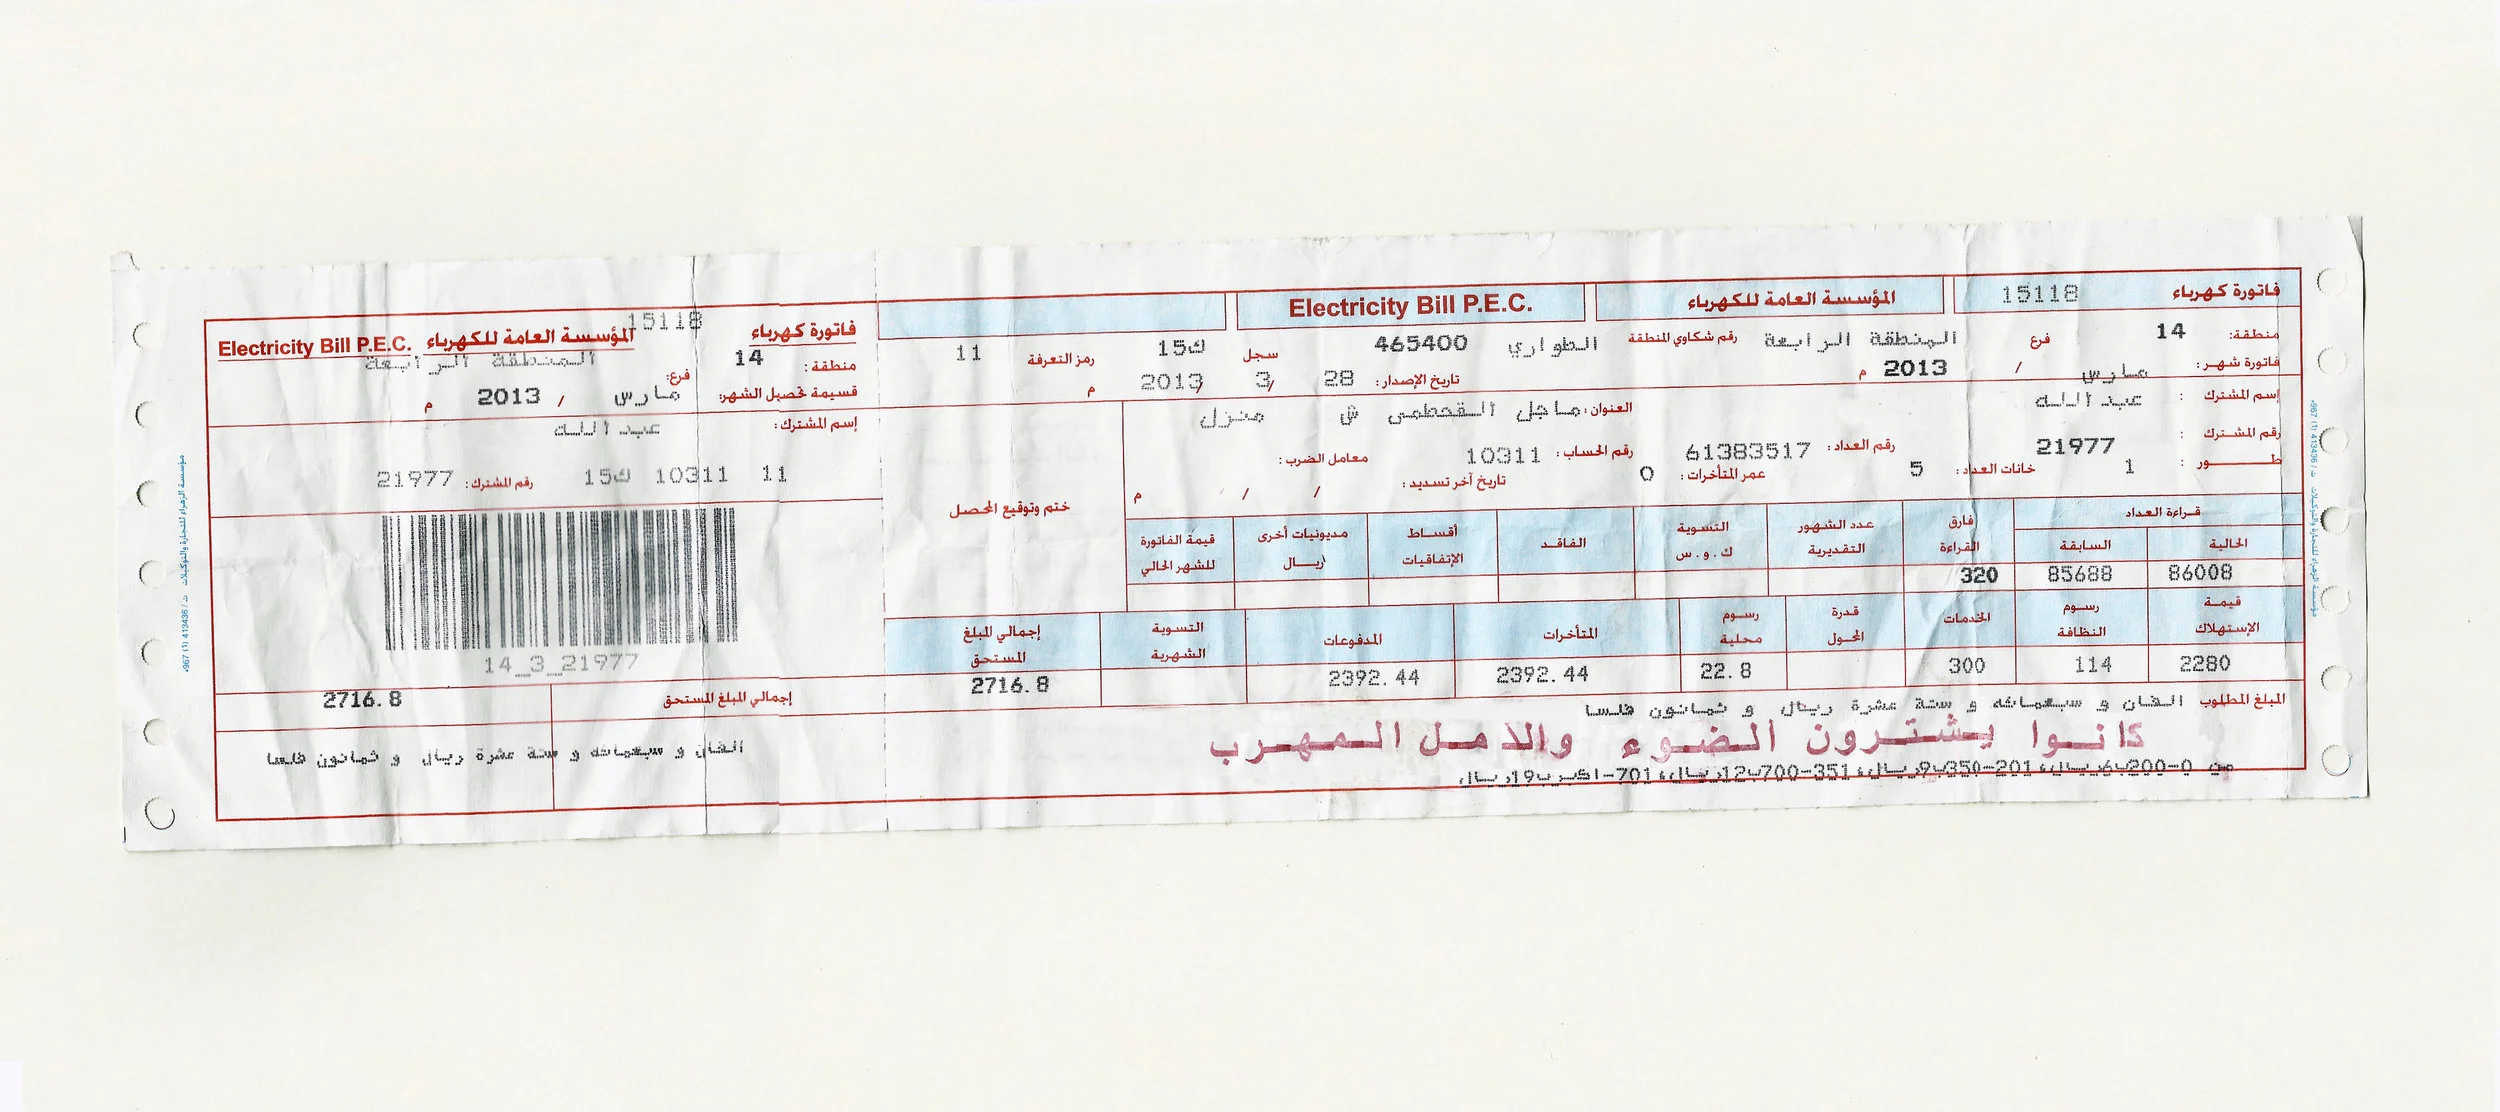 فاتورة كهرباء 15118 المؤسسة العامة للكهرباء Electricity Bill P.E.C.
منطقة: 14 فرع المنطقة الرابعة رقم شكاوي المنطقة الطواري 465400 سجل ك15 رمز التعرفة 11
فاتورة شهر: مارس / 2013 م تاريخ الإصدار: 28 / 3 / 2013 م
إسم المشترك : عبد الله العنوان: ماجل القحطمى ش منزل
رقم المشترك : 21977 رقم العداد: 61383517 رقم الحساب: 10311 معامل الضرب:
طور : 1 خانات العداد: 5 عمر المتأخرات: 0 تاريخ آخر تسديد: / / م
ختم وتوقيع المحصل
قراءة العداد فارق القراءة عدد الشهور التقديرية التسوية ك.و.س الفاقد أقساط الإتفاقيات مديونيات أخرى /ريال قيمة الفاتورة للشهر الحالي
الحالية السابقة
86008 85688 320
قيمة الإستهلاك رسوم النظافة الخدمات قدرة المحول رسوم محلية المتأخرات المدفوعات التسوية الشهرية إجمالي المبلغ المستحق
2280 114 300 22.8 2392.44 2392.44 2716.8
المبلغ المطلوب الفان و سبعمائه و ستة عشرة ريال و ثمانون فلسا
كانوا يشترون الضوء والامل المهرب
من 0-200ب6ريال،201-350ب9ريال،351-700ب12ريال،701-اكبر ب19ريال
فاتورة كهرباء 15118 المؤسسة العامة للكهرباء Electricity Bill P.E.C.
منطقة : 14 فرع: المنطقة الرابعة
قسيمة تحصيل الشهر: مارس / 2013 م
إسم المشترك : عبد الله
11 10311 ك15 رقم المشترك: 21977
14_3_21977
إجمالي المبلغ المستحق 2716.8
الفان و سبعمائه و ستة عشرة ريال و ثمانون فلسا
مؤسسة الزهراء للتجارة والتوكيلات ت / 413436 (1) 967+
مؤسسة الزهراء للتجارة والتوكيلات ت / 413436 (1) 967+